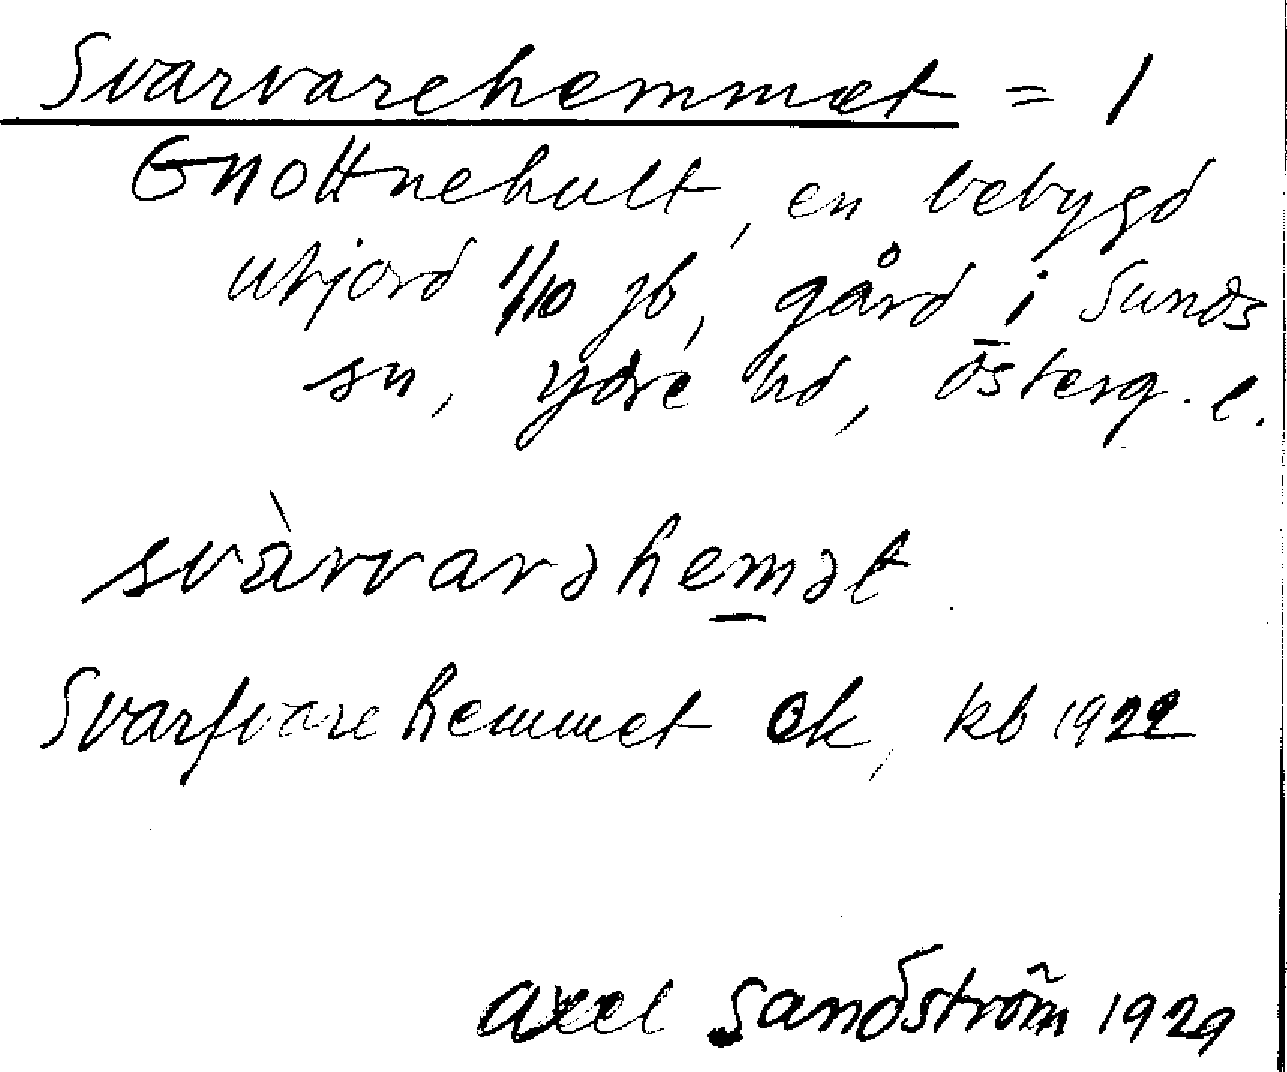 Svarvarehemmet = 1
Gnottnehult, en bebygd
utjord 1/10 jb, gård i Sunds
sn, Ydre hd, Österg. l.
svàrvarəhemət
Svarfvarehemmet ek, kb 1922
Axel Sandström 1929